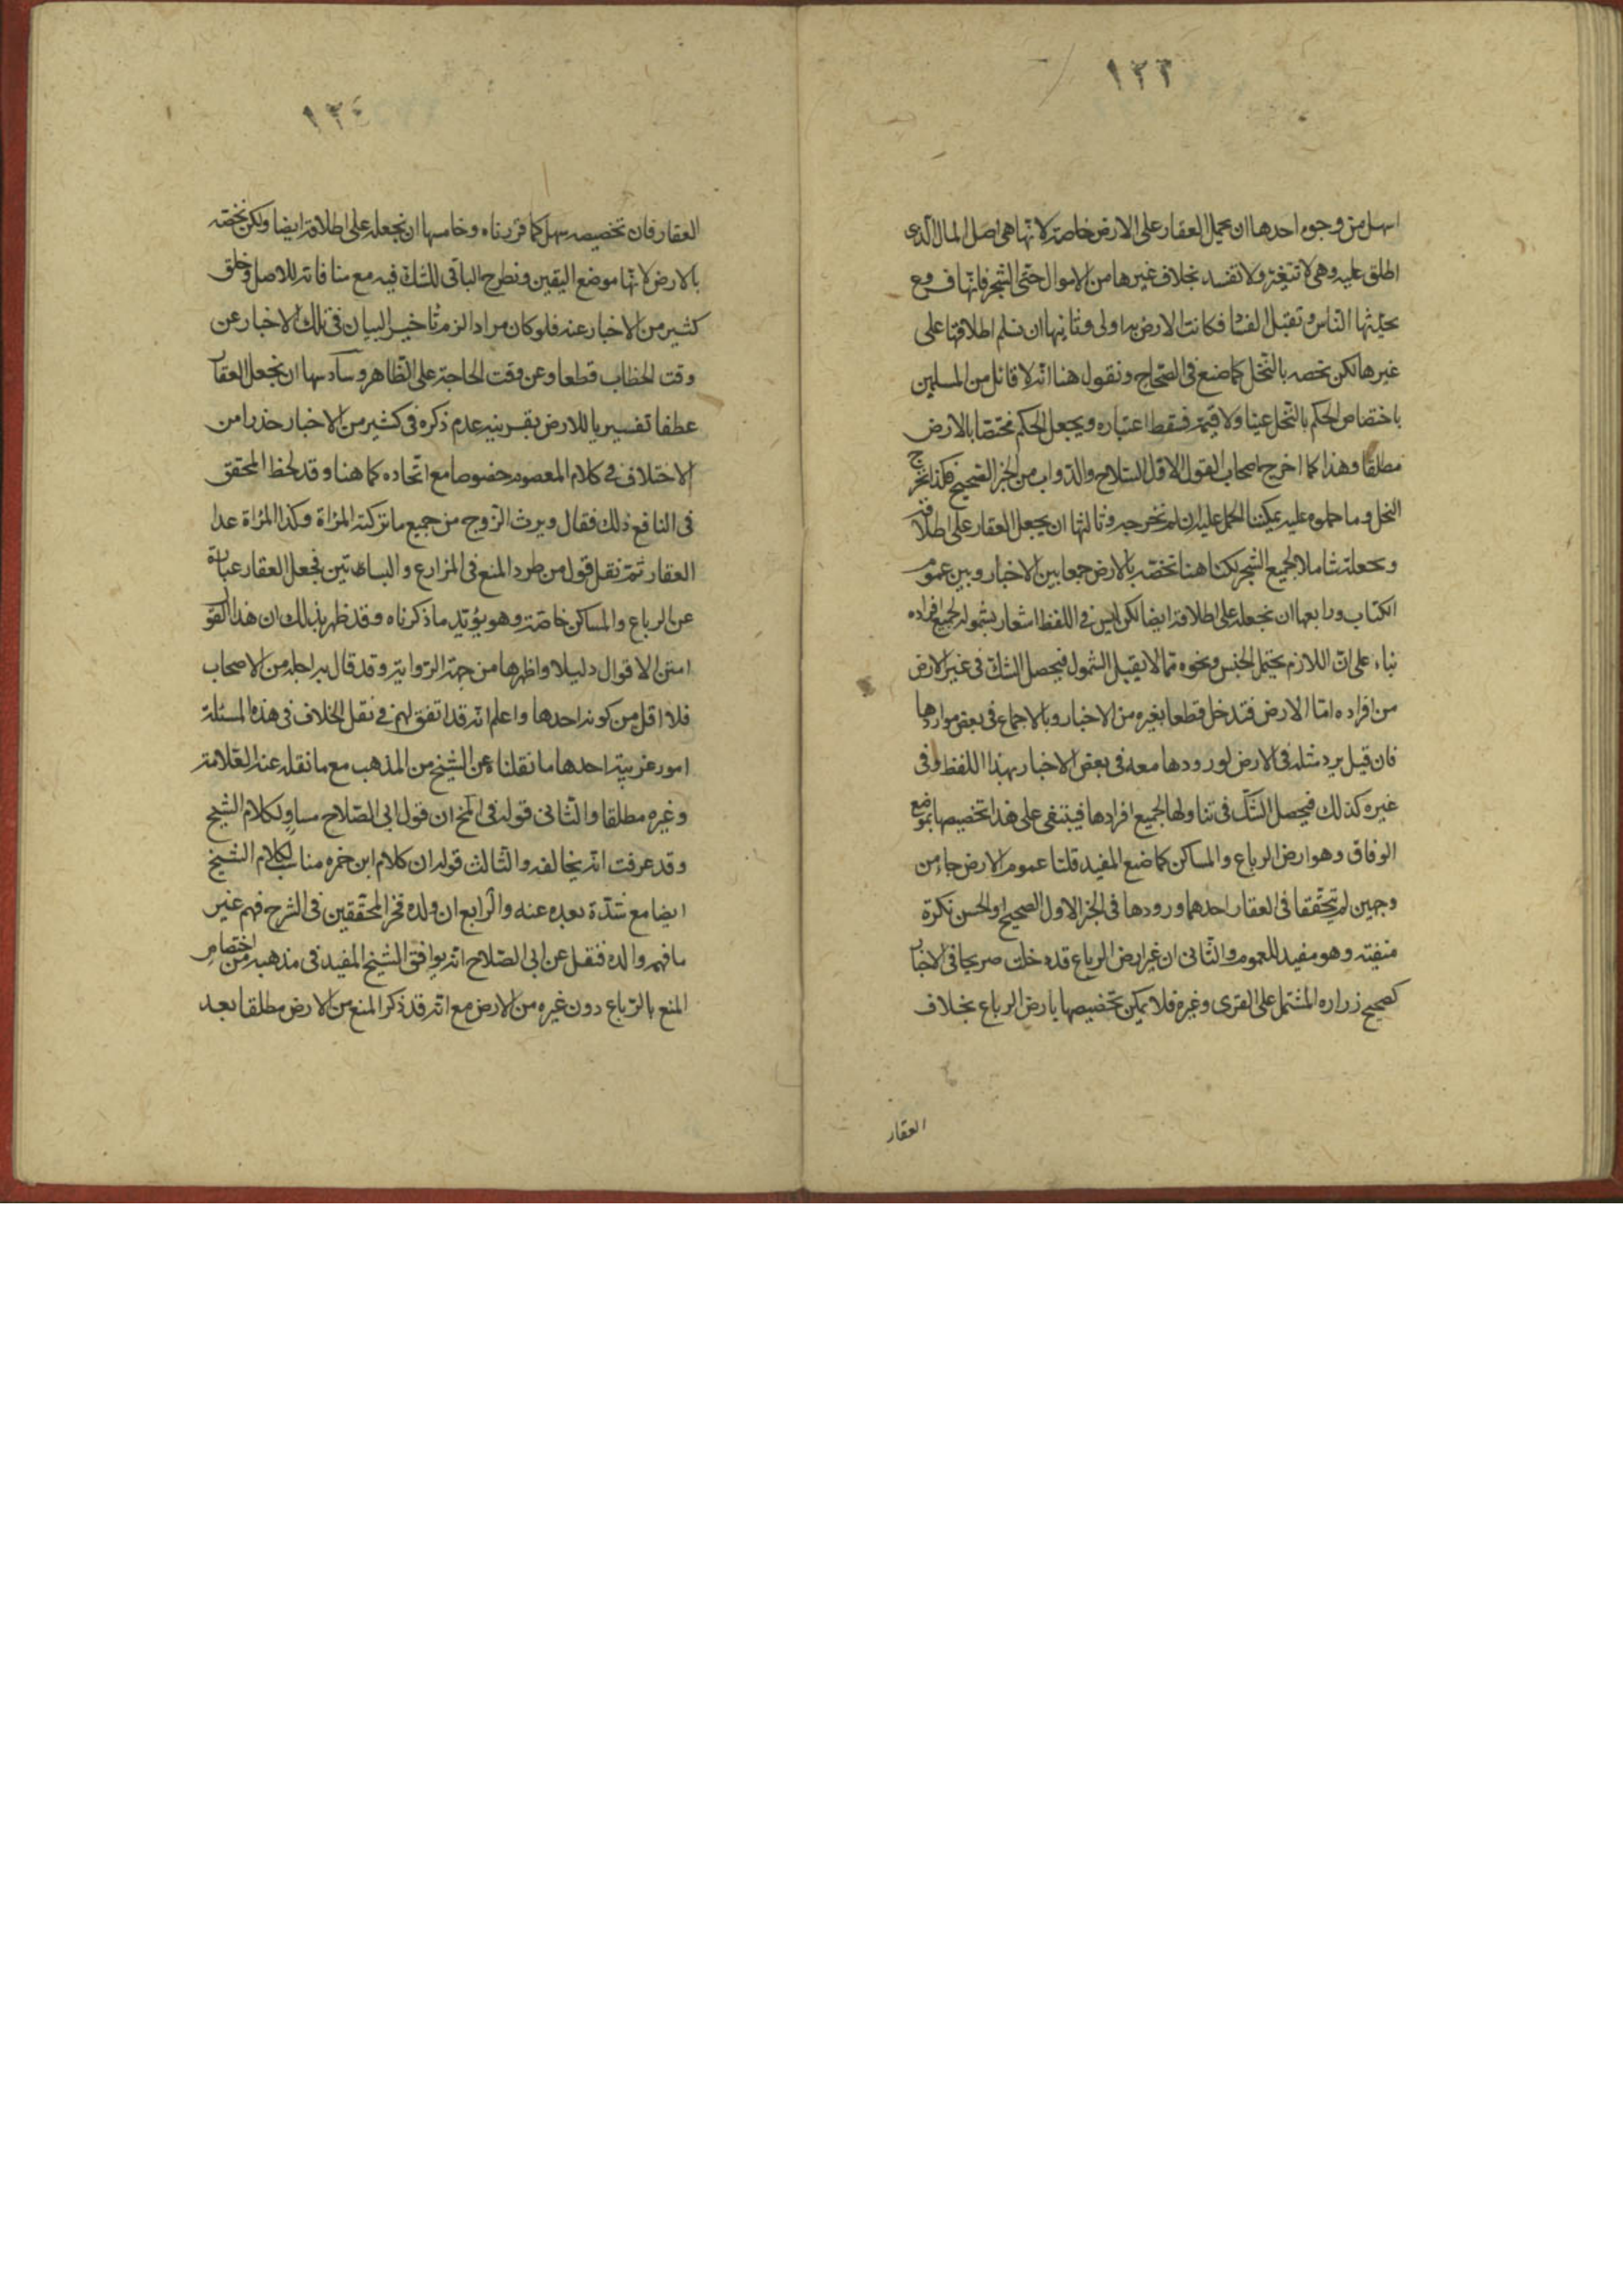 ١٢٣
اسهل من وجوه احدها ان يحمل العقار على الارض خاصة لانها هى اصل المال الذى
اطلق عليه وهى لا تتغير ولا تفسد بخلاف غيرها من الاموال حتى الشجر فانها فروع
يحدثها الناس وتقبل الفساد فكانت الارض به اولى وثانيها ان نسلم اطلاقها على
غيرها لكن نخصه بالنخل كما صنع فى الصحاح ونقول هنا انه لا قائل من المسلمين
باختصاص الحكم بالنخل عينا ولا قيمة فسقط اعتباره ويجعل الحكم مختصا بالارض
مطلقا وهذا كما اخرج اصحاب القول الاول السلاح والدواب من الخبر الصحيح فكذا نخرج
النخل وما حملوه عليه يمكننا الحمل عليه ان لم نخرجه وثالثها ان يجعل العقار على اطلاقه
ونجعله شاملا لجميع الشجر لكنا هنا نخصه بالارض جمعا بين الاخبار وبين عموم
الكتاب ورابعها ان نجعله على اطلاقه ايضا لكن ليس فى اللفظ اشعار بشموله لجميع افراده
بناء على ان اللازم يحتمل الجنس ونحوه مما لا يقبل الشمول فيحصل الشك فى غير الارض
من افراده اما الارض فتدخل قطعا بغيره من الاخبار وبالاجماع فى بعض مواردها
فان قيل يرد مثله فى الارض لورودها معه فى بعض الاخبار بهذا اللفظ وفى
غيره كذلك فيحصل الشك فى تناولها لجميع افرادها فينبغى على هذا تخصيصها بموضع
الوفاق وهو ارض الرباع والمساكن كما صنع المفيد قلنا عموم الارض جاء من
وجهين لم يتحققا فى العقار احدهما ورودها فى الخبر الاول الصحيح او الحسن نكرة
منفيته وهو مفيد للعموم والثانى ان غير ارض الرباع قد دخلت صريحا فى الاخبار
كصحيح زراره المشتمل على القرى وغيره فلا يمكن تخصيصها بارض الرباع بخلاف
العقار
العقار فان تخصيصه سهل كما قررناه وخامسها ان نجعله على اطلاقه ايضا ولكن نخصه
بالارض لانها موضع اليقين ونطرح الباقى للشك فيه مع منافاته للاصل وخلو
كثير من الاخبار عنه فلو كان مرادا لزم تاخير البيان فى تلك الاخبار عن
وقت الخطاب قطعا وعن وقت الحاجة على الظاهر وسادسها ان نجعل العقار
عطفا تفسيريا للارض بقرينه عدم ذكره فى كثير من الاخبار حذرا من
الاختلاف فى كلام المعصوم خصوصا مع اتحاده كما هنا وقد لحظ المحقق
فى النافع ذلك فقال ويرث الزوج من جميع ما تركته المراة وكذا المراة عدا
العقار ثم نقل قول من طرد المنع فى المزارع والبساتين فجعل العقار عبارة
عن الرباع والمساكن خاصة وهو يؤيد ما ذكرناه وقد ظهر بذلك ان هذا القول
امتن الاقوال دليلا واظهرها من جهة الرواية وقد قال به اجله من الاصحاب
فلا اقل من كونه احدها واعلم انه قد اتفق لهم فى نقل الخلاف فى هذه المسئلة
امور غريبة احدها ما نقلناه عن الشيخ من المذهب مع ما نقله عنه العلامة
وغيره مطلقا والثانى قوله فى المخ ان قول ابى الصلاح مساو لكلام الشيخ
وقد عرفت انه يخالفه والثالث قوله ان كلام ابن حمزه مناسب لكلام الشيخ
ايضا مع شدة بعده عنه والرابع ان ولده فخر المحققين فى الشرح فهم غير
ما فهم والده فنقل عن ابى الصلاح انه يوافق الشيخ المفيد فى مذهبه من اختصاص
المنع بالرباع دون غيره من الارض مع انه قد ذكر المنع من الارض مطلقا بعد